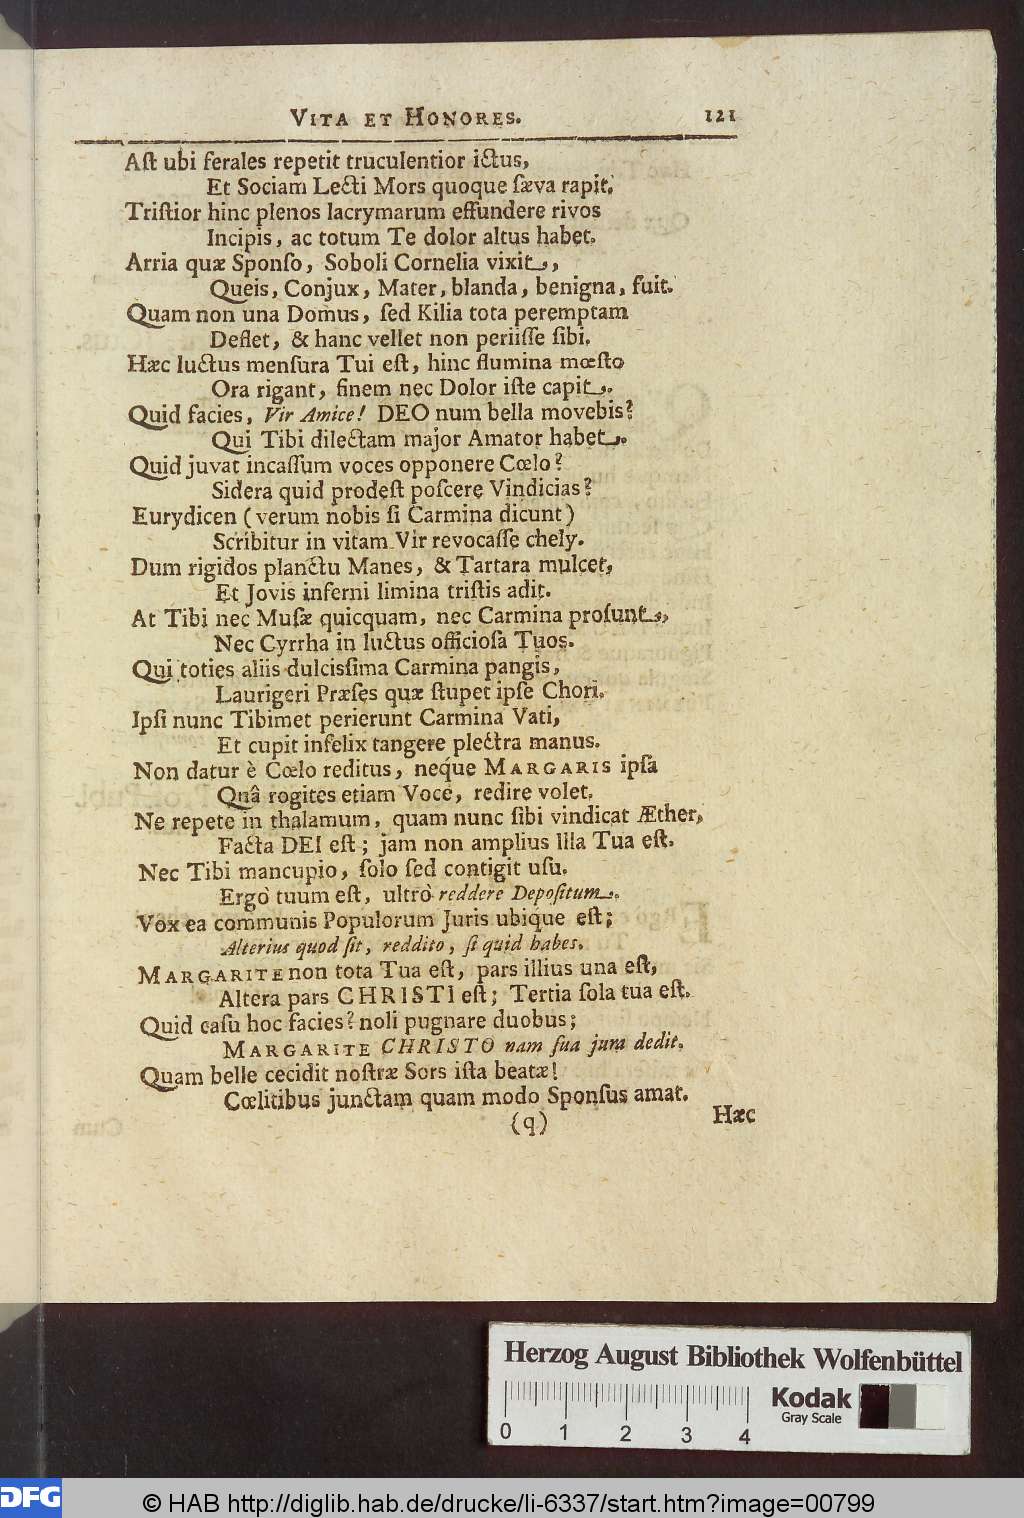 VITA ET HONORES. 121
Aſt ubi ferales repetit truculentior ictus,
Et Sociam Lecti Mors quoque ſæva rapit,
Triſtior hinc plenos lacrymarum effundere rivos
Incipis, ac totum Te dolor altus habet.
Arria quæ Sponſo, Soboli Cornelia vixit,
Queis, Conjux, Mater, blanda, benigna, fuit.
Quam non una Domus, ſed Kilia tota peremptam
Deflet, & hanc vellet non periiſſe ſibi.
Hæc luctus menſura Tui eſt, hinc flumina mœſto
Ora rigant, finem nec Dolor iſte capit.
Quid facies, Vir Amice! DEO num bella movebis?
Qui Tibi dilectam major Amator habet.
Quid juvat incaſſum voces opponere Cœlo?
Sidera quid prodeſt poſcere Vindicias?
Eurydicen (verum nobis ſi Carmina dicunt)
Scribitur in vitam Vir revocaſſe chely.
Dum rigidos planctu Manes, & Tartara mulcet,
Et Jovis inferni limina triſtis adit.
At Tibi nec Muſæ quicquam, nec Carmina proſunt,
Nec Cyrrha in luctus officioſa Tuos.
Qui toties aliis dulcisſima Carmina pangis,
Laurigeri Præſes quæ ſtupet ipſe Chori.
Ipſi nunc Tibimet perierunt Carmina Vati,
Et cupit infelix tangere plectra manus.
Non datur è Cœlo reditus, neque MARGARIS ipſa
Quâ rogites etiam Voce, redire volet.
Ne repete in thalamum, quam nunc ſibi vindicat Æther,
Facta DEI eſt; jam non amplius illa Tua eſt.
Nec Tibi mancupio, ſolo ſed contigit uſu.
Ergò tuum eſt, ultrò reddere Depoſitum.
Vox ea communis Populorum Juris ubique eſt;
Alterius quod ſit, reddito, ſi quid habes.
MARGARITE non tota Tua eſt, pars illius una eſt,
Altera pars CHRISTI eſt; Tertia ſola tua eſt.
Quid caſu hoc facies? noli pugnare duobus;
MARGARITE CHRISTO nam ſua jura dedit.
Quam belle cecidit noſtræ Sors iſta beatæ!
Cœlitibus junctam quam modo Sponſus amat.
(q) Hæc
Herzog August Bibliothek Wolfenbüttel
Kodak
Gray Scale
0 1 2 3 4
DFG
© HAB http://diglib.hab.de/drucke/li-6337/start.htm?image=00799